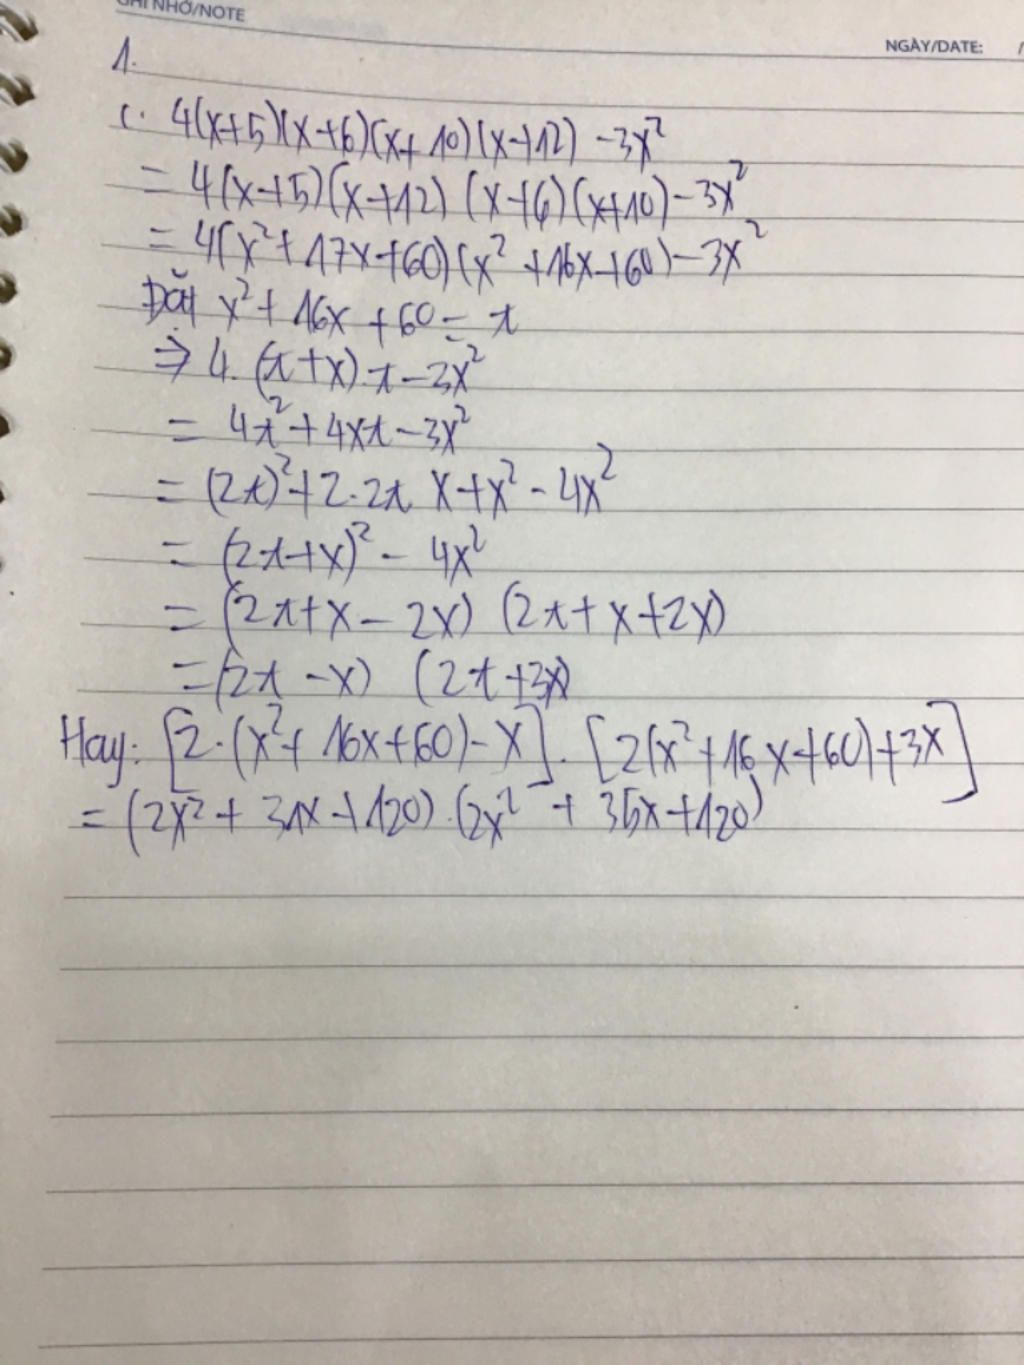 GHI NHỚ/NOTE
NGÀY/DATE: /
1.
c. 4(x+5)(x+6)(x+10)(x+12) -3x²
= 4(x+5)(x+12) (x+6)(x+10)-3x²
= 4(x²+17x+60)(x²+16x+60)-3x²
Đặt x²+ 16x +60 = t
⇒ 4.(t+x).t-3x²
= 4t²+4xt-3x²
= (2t)²+2.2t.x+x²-4x²
= (2t+x)²- 4x²
= (2t+x-2x) (2t+x+2x)
=(2t -x) (2t+3x)
Hay: [2.(x²+ 16x+60)-x].[2(x²+16x+60)+3x]
= (2x²+ 31x+120).(2x² + 35x+120)